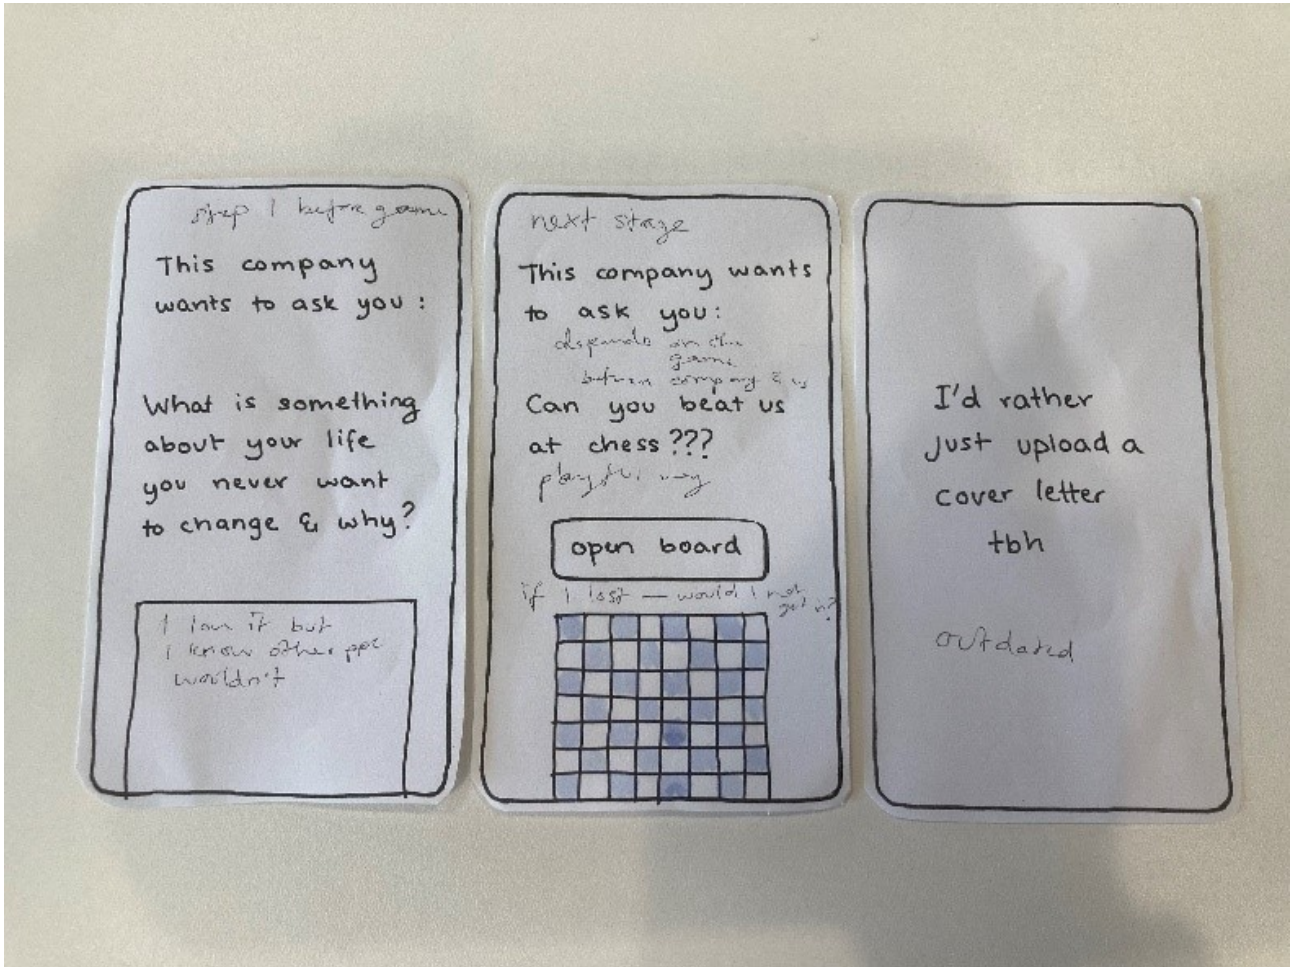 step 1 before game
This company
wants to ask you :
What is something
about your life
you never want
to change & why?
I love it but
I know other ppl
wouldn't
next stage
This company wants
to ask you:
depends on the
game
between company & us
Can you beat us
at chess???
playful way
open board
if I lost — would I not
get in?
I'd rather
just upload a
cover letter
tbh
outdated